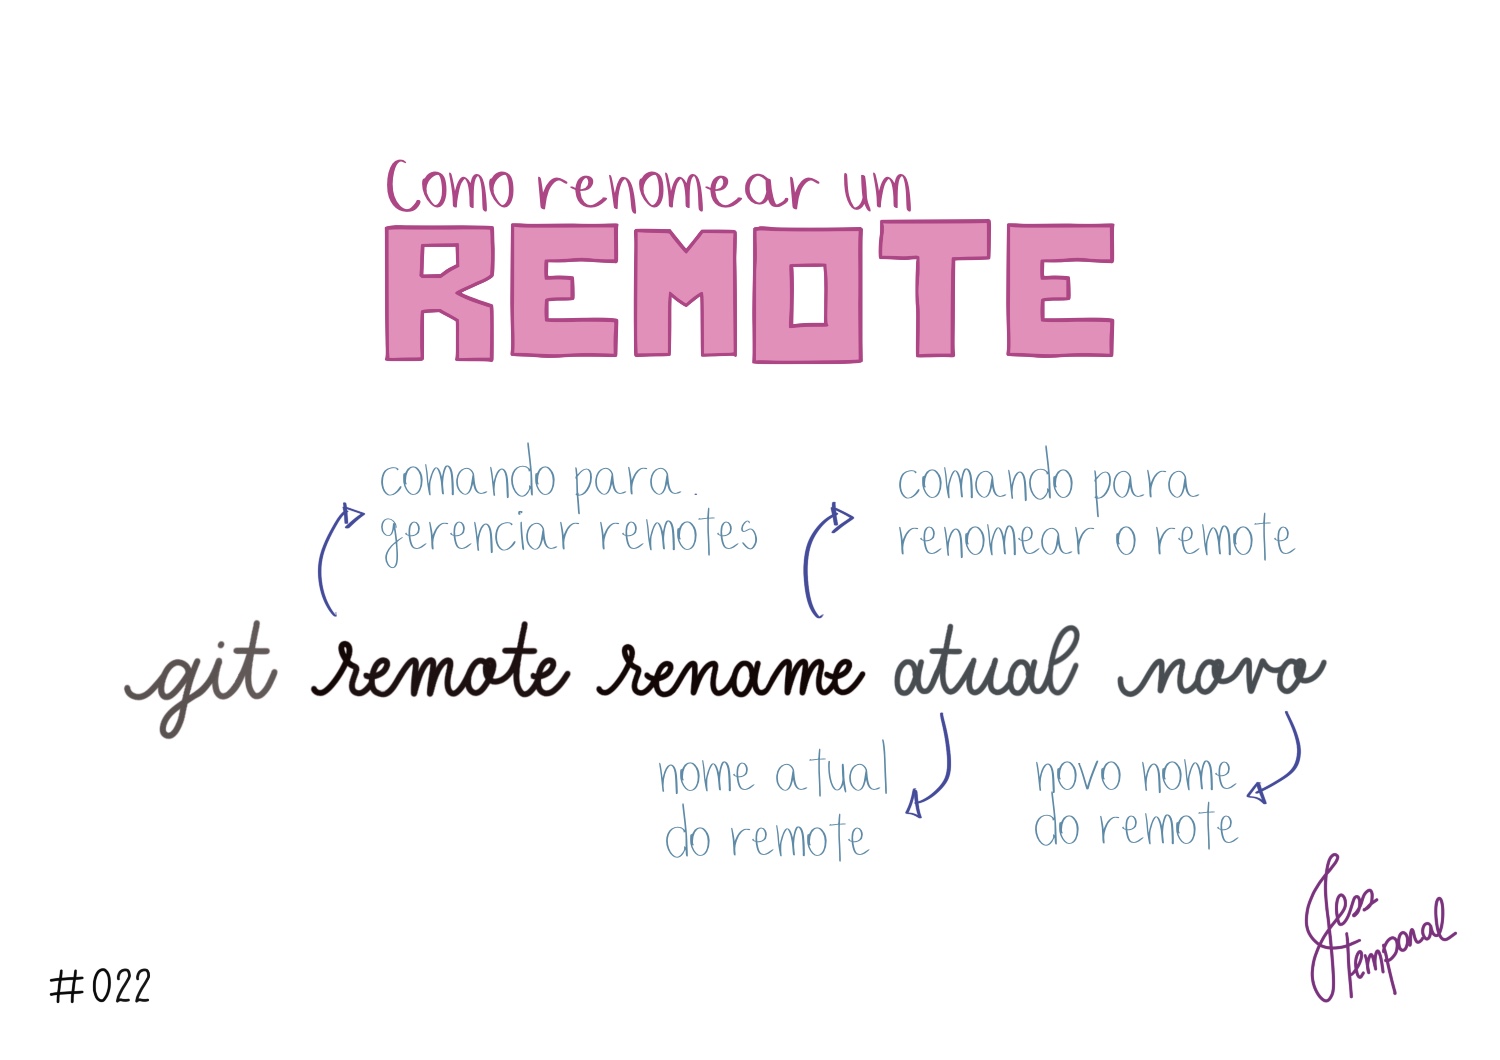 Como renomear um
REMOTE
comando para.
gerenciar remotes
comando para
renomear o remote
git remote rename atual novo
nome atual
do remote
novo nome
do remote
Jess
temporal
#022